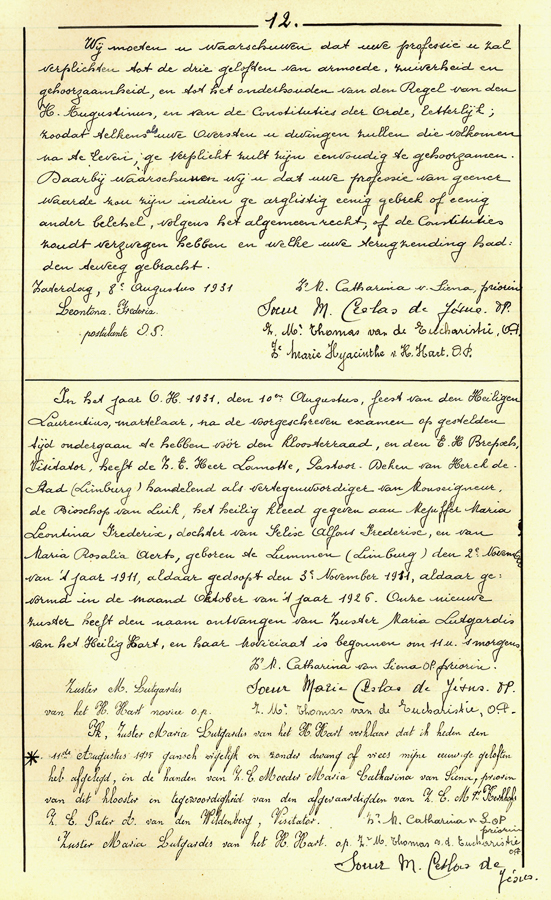 12.
Wij moeten u waarschuwen dat uwe professie u zal
verplichten tot de drie geloften van armoede, zuiverheid en
gehoorzaamheid, en tot het onderhouden van den Regel van den
H. Augustinus, en van de Constituties der Orde, letterlijk;
zoodat telkens als uwe Oversten u dwingen zullen die volkomen
na te leven, ge verplicht zult zijn eenvoudig te gehoorzamen.
Daarbij waarschuwen wij u dat uwe professie van geener
waarde zou zijn indien ge arglistig eenig gebrek of eenig
ander beletsel, volgens het algemeen recht, of de Constituties
zoudt verzwegen hebben en welke uwe terugzending had:
den teweeg gebracht.
Zaterdag, 8e Augustus 1931
Zr M. Catharina v. Siena, priorin
Leontina Frederix
Soeur M. Ceslas de Jésus. OP.
postulante O.S.
Z. Mr Thomas van de Eucharistie, O.P.
Zr Marie Hyacinthe v. H. Hart. O.P.
In het jaar O.H. 1931, den 10en Augustus, feest van den Heiligen
Laurentius, martelaar, na de voorgeschreven examen op gestelden
tijd ondergaan te hebben vóór den kloosterraad, en den E. H. Brepoels,
Visitator, heeft de Z. E. Heer Lamotte, Pastoor-Deken van Herck-de-
Stad (Limburg) handelend als vertegenwoordiger van Monseigneur,
de Bisschop van Luik, het heilig kleed gegeven aan Mejuffer Maria
Leontina Frederix, dochter van Felix Alfons Frederix, en van
Maria Rosalia Aerts, geboren te Lummen (Limburg) den 2e November
van 't jaar 1911, aldaar gedoopt den 3e November 1911, aldaar ge:
vormd in de maand Oktober van 't jaar 1926. Onze nieuwe
zuster heeft den naam ontvangen van Zuster Maria Lutgardis
van het Heilig Hart, en haar Noviciaat is begonnen om 11 u. 's morgens
Zr M. Catharina van Siena OP priorin.
Zuster M. Lutgardis
Soeur Marie Ceslas de Jésus. OP.
van het H. Hart novice o.p.
Z. Mr Thomas van de Eucharistie, O.P.
Ik, Zuster Maria Lutgardis van het H. Hart verklaar dat ik heden den
* 11de Augustus 1935 gansch vrijelijk en zonder dwang of vrees mijne eeuwige geloften
heb afgelegd, in de handen van Z. E. Moeder Maria Catharina van Siena, priorin
van dit klooster in tegenwoordigheid van den afgevaardigden van Z. E. Mgr Kerkhofs
Z. E. Pater A. van den Wildenberg, Visitator.
Zr M. Catharina v. S. OP
priorin
Zuster Maria Lutgardis van het H. Hart. o.p.
Zr Mr Thomas v. d. Eucharistie
o.p.
Soeur M. Ceslas de
Jésus.